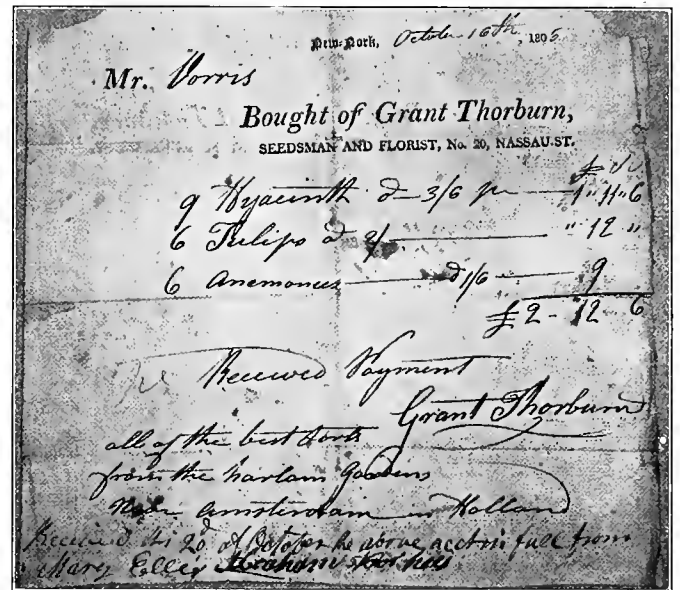 New-York, October 16th, 1805
Mr. Vorris
Bought of Grant Thorburn,
SEEDSMAN AND FLORIST, No. 20, NASSAU-ST.
9 Hyacinth a 3/6 pr 1 " 11 " 6
6 Tulips a 2/ " 12 "
6 Anemones a 1/6 9
£ 2 - 12 6
Received Payment
Grant Thorburn
all of the best sorts
from the harlam Gardens
Near Amsterdam in Holland
Received this 20 of October the above acct in full from
Mary Ellis Abraham